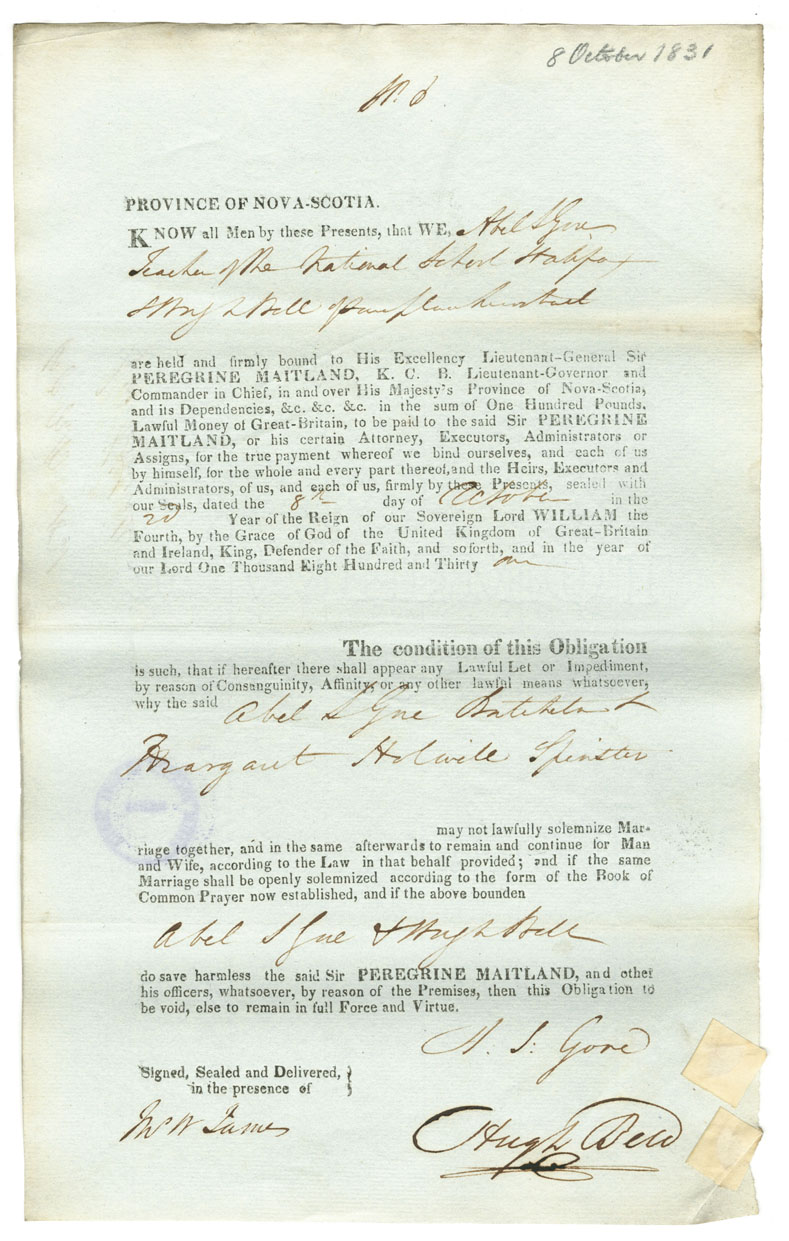 8 October 1831
PROVINCE OF NOVA-SCOTIA.
KNOW all Men by these Presents, that WE, Abel S Gore
Teacher of the National School Halifax
& Hugh Bell of same place
are held and firmly bound to His Excellency Lieutenant-General Sir
PEREGRINE MAITLAND, K. C. B. Lieutenant-Governor and
Commander in Chief, in and over His Majesty's Province of Nova-Scotia,
and its Dependencies, &c. &c. &c. in the sum of One Hundred Pounds,
Lawful Money of Great-Britain, to be paid to the said Sir PEREGRINE
MAITLAND, or his certain Attorney, Executors, Administrators or
Assigns, for the true payment whereof we bind ourselves, and each of us
by himself, for the whole and every part thereof, and the Heirs, Executors and
Administrators, of us, and each of us, firmly by these Presents, sealed with
our Seals, dated the 8th day of October in the
2d Year of the Reign of our Sovereign Lord WILLIAM the
Fourth, by the Grace of God of the United Kingdom of Great-Britain
and Ireland, King, Defender of the Faith, and soforth, and in the year of
our Lord One Thousand Eight Hundred and Thirty one
The condition of this Obligation
is such, that if hereafter there shall appear any Lawful Let or Impediment,
by reason of Consanguinity, Affinity or any other lawful means whatsoever,
why the said Abel S Gore Batchelor &
Margaret Holwell Spinster
may not lawfully solemnize Mar-
riage together, and in the same afterwards to remain and continue for Man
and Wife, according to the Law in that behalf provided; and if the same
Marriage shall be openly solemnized according to the form of the Book of
Common Prayer now established, and if the above bounden
Abel S Gore & Hugh Bell
do save harmless the said Sir PEREGRINE MAITLAND, and other
his officers, whatsoever, by reason of the Premises, then this Obligation to
be void, else to remain in full Force and Virtue.
A. S: Gore
Signed, Sealed and Delivered, }
in the presence of }
James
Hugh Bell